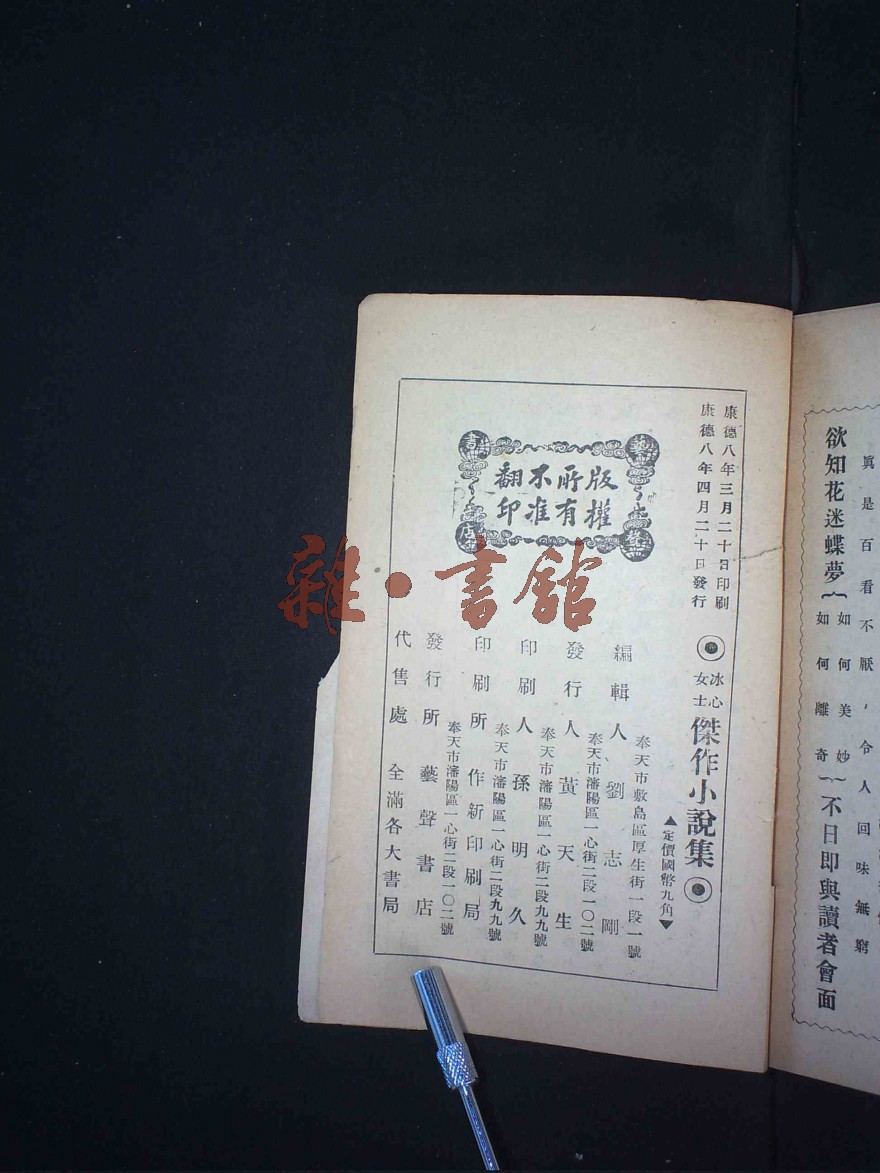 康德八年三月二十日印刷
康德八年四月二十日發行
冰心
女士
傑作小說集
▲定價國幣九角▼
版權
所有
不准
翻印
藝
聲
書
店
奉天市敷島區厚生街一段一號
編輯人 劉志剛
奉天市瀋陽區一心街二段一〇二號
發行人 黃天生
奉天市瀋陽區一心街二段九九號
印刷人 孫明久
奉天市瀋陽區一心街二段九九號
印刷所 作新印刷局
奉天市瀋陽區一心街二段一〇二號
發行所 藝聲書店
代售處 全滿各大書局
雜·書館
真是百看不厭,令人回味無窮
欲知花迷蝶夢
如何美妙
如何離奇
不日即與讀者會面